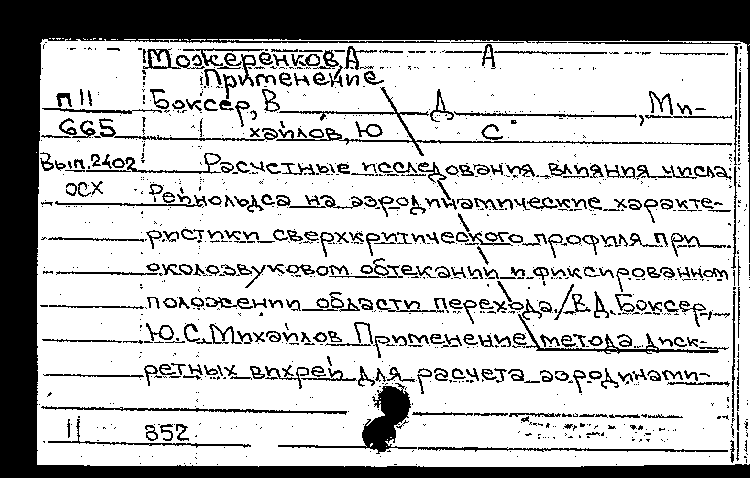 Можеренков, А А
Применение
П11 Боксер, В Д , Ми-
665 хайлов, Ю С.
Вып. 2402 Расчетные исследования влияния числа
ОСХ Рейнольдса на аэродинамические характе-
ристики сверхкритического профиля при
околозвуковом обтекании и фиксированном
положении области перехода / В.Д. Боксер,
Ю.С. Михайлов Применение метода диск-
ретных вихрей для расчета аэродинами-
11 852